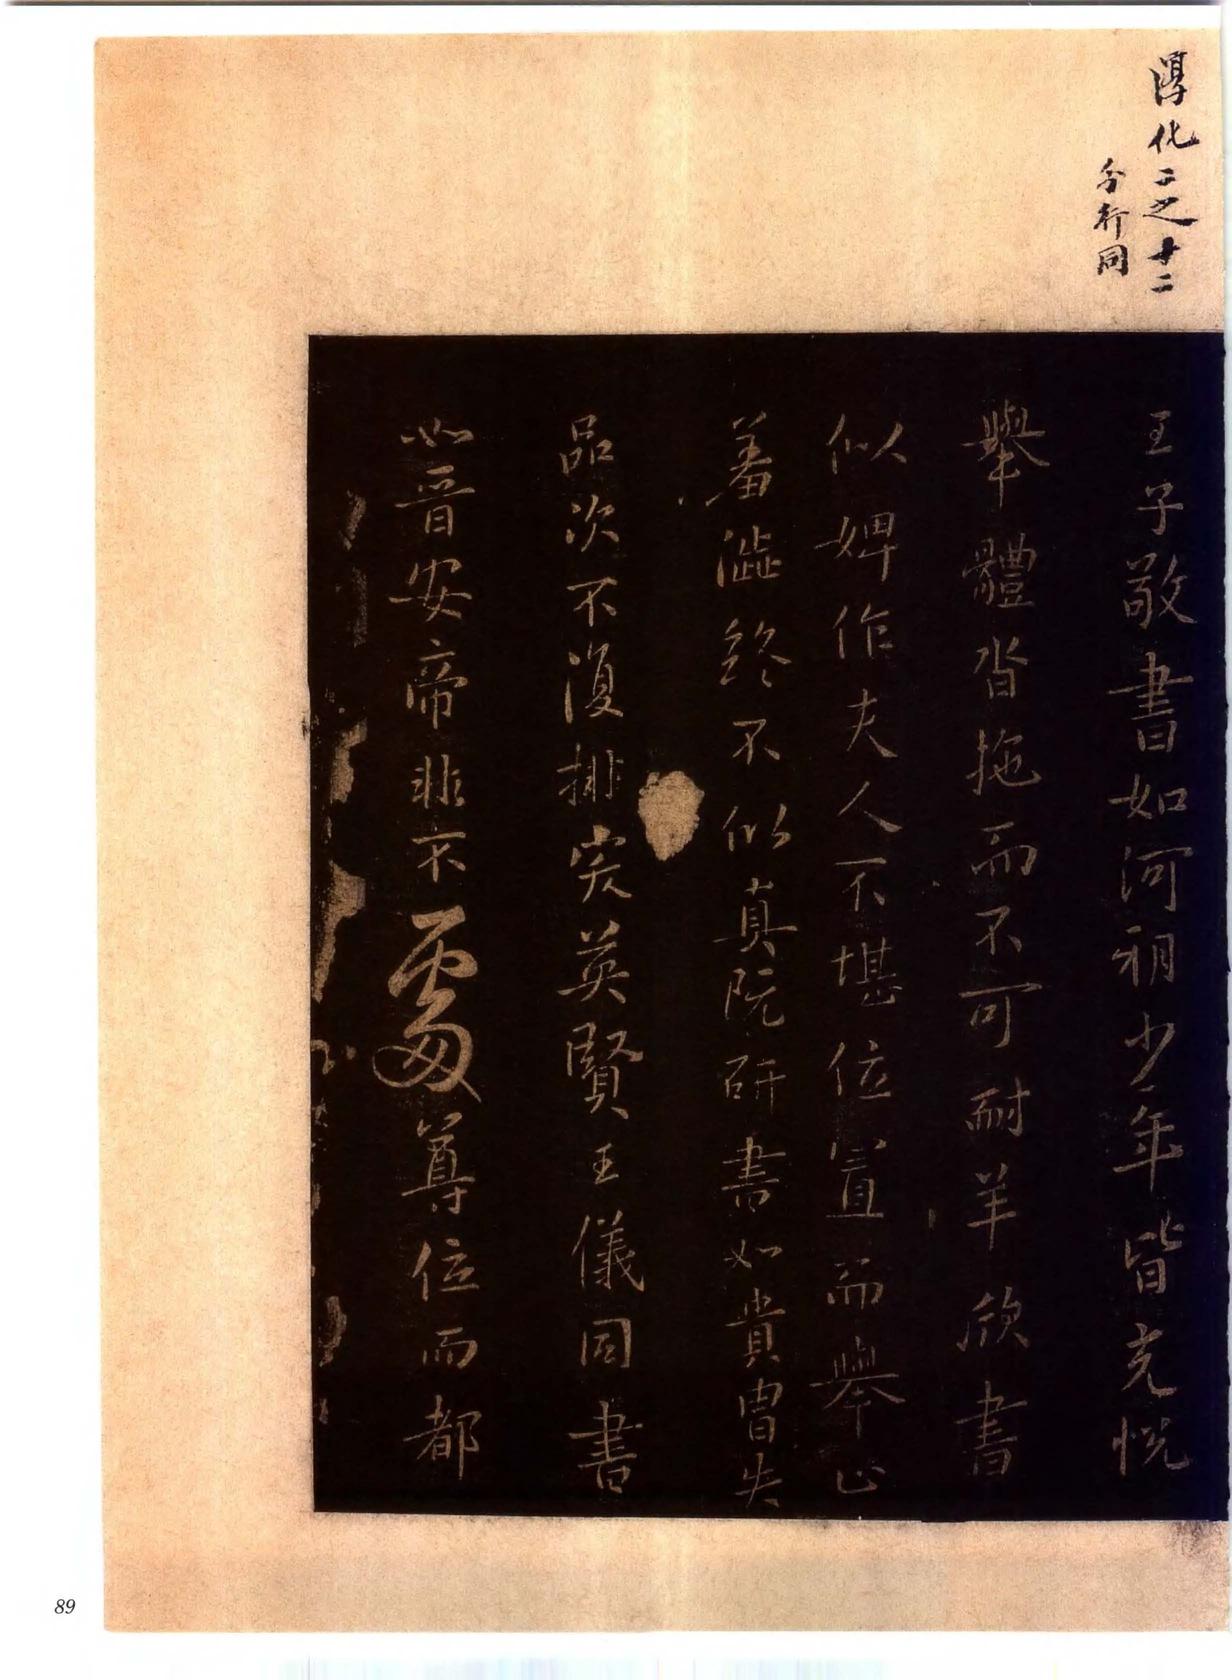 淳化二之十二
分行同
王子敬書如河朔少年皆充悦
舉體沓拖而不可耐羊欣書
似婢作夫人不堪位置而舉止
羞澁終不似真阮研書如貴胄失
品次不復排突英賢王儀同書
如晉安帝非不處尊位而都
89